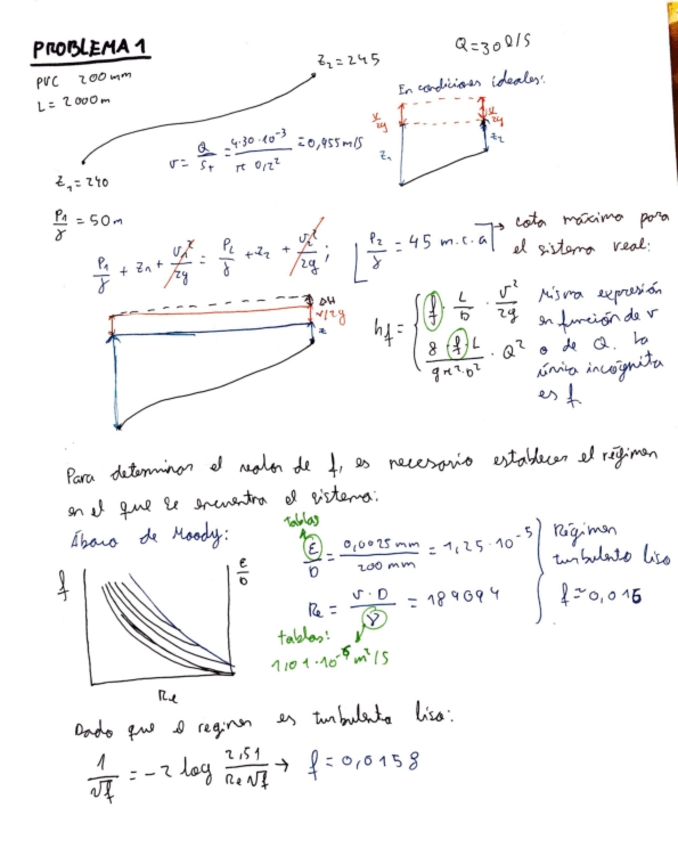 PROBLEMA 1
PVC 200 mm
L = 2000 m
Z₂ = 245
Q = 30 l/s
En condiciones ideales:
v = Q/S_T = 4·30·10⁻³/π·0,2² = 0,955 m/s
v/2g
v/2g
Z₁
Z₂
Z₁ = 240
P₁/γ = 50 m
P₁/γ + Z₁ + v₁²/2g = P₂/γ + Z₂ + v₂²/2g ; P₂/γ = 45 m.c.a → cota máxima para
el sistema real:
ΔH
v/2g
z
h_f = { f · L/D · v²/2g
8·f·L/gπ²·D² · Q²
Misma expresión
en función de v
o de Q. La
única incógnita
es f
Para determinar el valor de f, es necesario establecer el régimen
en el que se encuentra el sistema:
Ábaco de Moody:
f
ε/D
Re
tablas
ε/D = 0,0025 mm/200 mm = 1,25·10⁻⁵
Re = v·D/γ = 189094
tablas:
1,01·10⁻⁶ m²/s
Régimen
turbulento liso
f ≈ 0,016
Dado que el regimen es turbulento liso:
1/√f = -2 log 2,51/Re√f → f = 0,0158